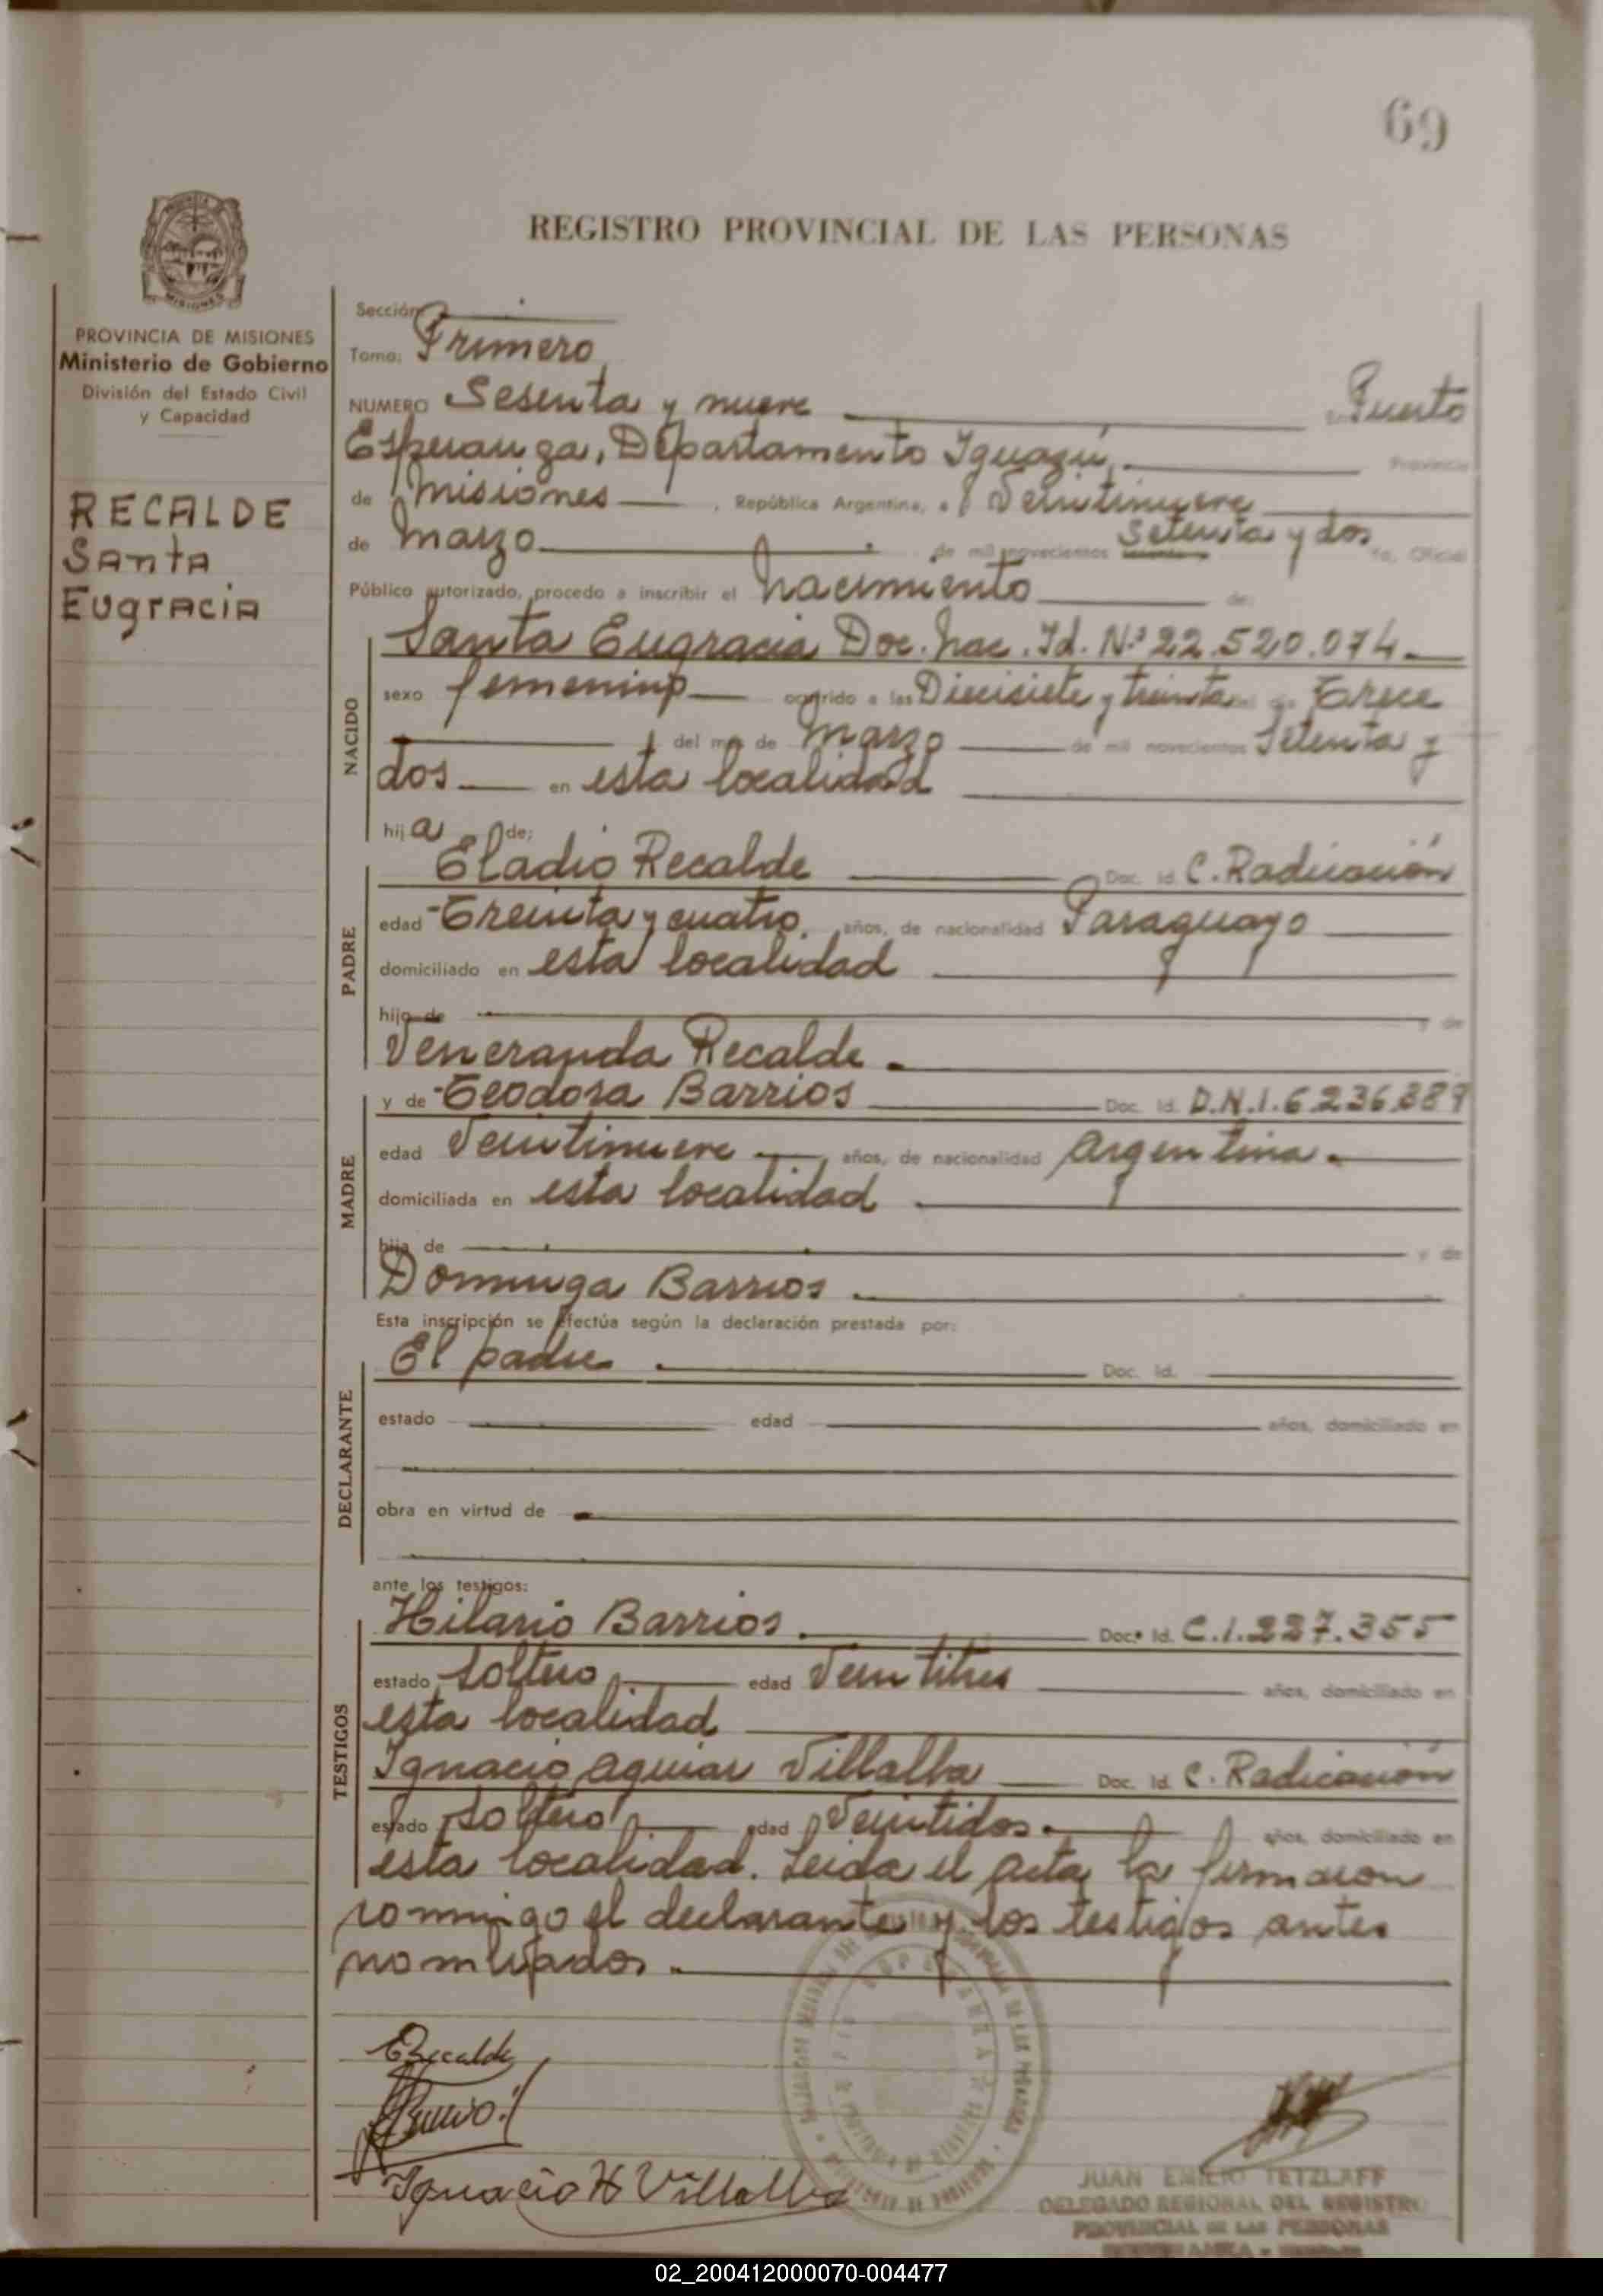 69
REGISTRO PROVINCIAL DE LAS PERSONAS
PROVINCIA DE MISIONES
Ministerio de Gobierno
División del Estado Civil
y Capacidad
RECALDE
SANTA
EUGRACIA
Sección
Tomo: Primero
NUMERO Sesenta y nueve En Puerto
Esperanza, Departamento Iguazú, Provincia
de Misiones, República Argentina, a Veintinueve
de Marzo de mil novecientos setenta y dos Yo, Oficial
Público autorizado, procedo a inscribir el Nacimiento de:
NACIDO
Santa Eugracia Doc. Nac. Id. Nº 22.520.074
sexo femenino ocurrido a las Diecisiete y treinta Trece
del mes de Marzo de mil novecientos Setenta y
dos en esta localidad
hija de:
PADRE
Eladio Recalde Doc. Id. C. Radicación
edad Treinta y cuatro años, de nacionalidad Paraguayo
domiciliado en esta localidad
hijo de y de
Veneranda Recalde
MADRE
y de Teodosa Barrios Doc. Id. D.N.I. 6236389
edad Veintinueve años, de nacionalidad Argentina
domiciliada en esta localidad
hija de y de
Dominga Barrios
Esta inscripción se efectúa según la declaración prestada por:
DECLARANTE
El padre Doc. Id.
estado edad años, domiciliado en
obra en virtud de
ante los testigos:
TESTIGOS
Hilario Barrios Doc. Id. C.I. 227.355
estado Soltero edad Veintitres años, domiciliado en
esta localidad
Ignacio Aguiar Villalba Doc. Id. C. Radicación
estado Soltero edad Veintidos años, domiciliado en
esta localidad. Leida el acta, la firmaron
conmigo el declarante y los testigos antes
nombrados.
ERecalde
Ignacio H Villalba
JUAN EMILIO TETZLAFF
DELEGADO REGIONAL DEL REGISTRO
PROVINCIAL DE LAS PERSONAS
02_200412000070-004477